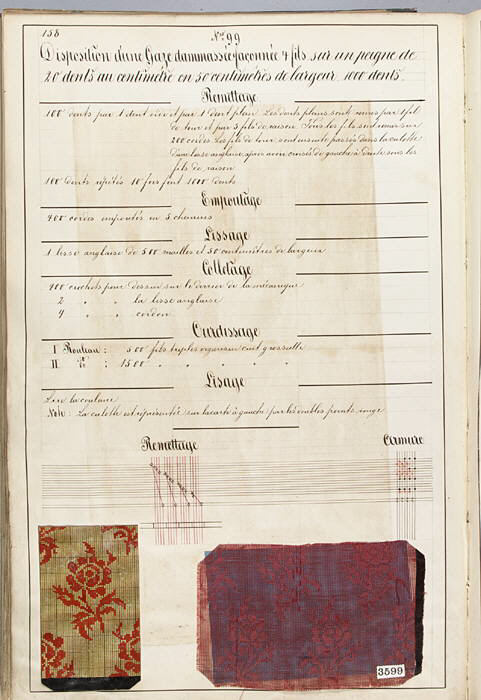 158
N° 99
Disposition d'une Gaze dammassée façonnée 4 fils sur un peigne de
20 dents au centimètre en 50 centimètres de largeur 1000 dents
Remettage
100 dents par 1 dent vide et par 1 dent plein Les dents pleins sont remis par 1 fil
de tour et par 3 fils de raison Tous les fils sont remis sur
400 cordes Les fils de tour sont ensuite passés dans la culotte
d'une lisse anglaise après avoir croisés de gauche à droite sous les
fils de raison
100 dents répétés 10 fois font 1000 dents
Empoutage
400 cordes empoutés en 5 chemins
Lissage
1 lisse anglaise de 500 mailles et 50 centimètres de largeur
Colletage
400 crochets pour dessin sur le derrier de la mécanique
2 " " la lisse anglaise
4 " " cordon
Ourdissage
I Rouleau : 500 fils triples organsin cuit grossulle
II d° : 1500 " " " "
Lisage
Lire la couleur
Note : La culotte est représentée sur la carte à gauche par les doubles points rouge
Remettage
Armure
3599